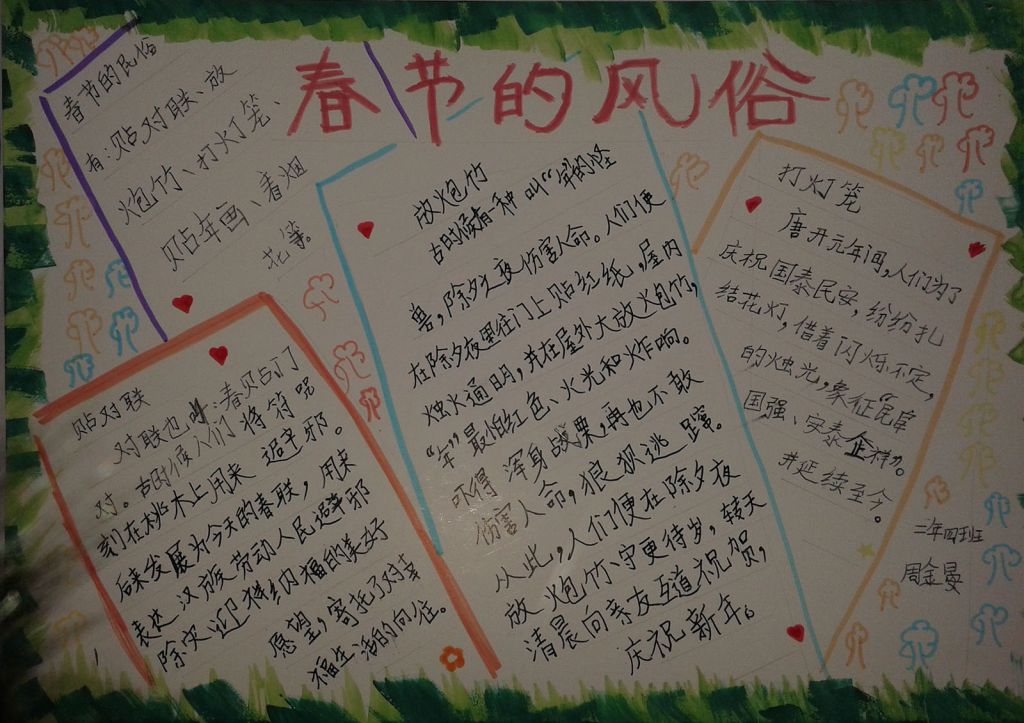 春节的风俗
春节的民俗
有:贴对联、放
炮竹、打火灯笼、
贴年画、看烟
花等。
贴对联
对联也叫:春贴门
对。古时候人们将符咒
刻在桃木上用来避邪。
后来发展为今天的春联,用来
表达汉族劳动人民避邪
除灾迎祥纳福的美好
愿望,寄托了对幸
福生活的向往。
放炮竹
古时候有一种叫“年”的怪
兽,除夕之夜伤害人命。人们便
在除夕夜里往门上贴红纸,屋内
烛火通明,并在屋外大放火包竹,
“年”最怕红色、火光和炸响。
可得浑身战栗,再也不敢
伤害人命,狼狈逃蹿。
从此,人们便在除夕夜
放炮竹、守更待岁,转天
清晨向亲友互道祝贺,
庆祝新年。
打灯笼
唐开元年间,人们为了
庆祝国泰民安,纷纷扎
结花灯,借着闪烁不定
的烛光,象征“民阜
国强、安泰企祥”。
并延续至今。
二年四班
周金晏